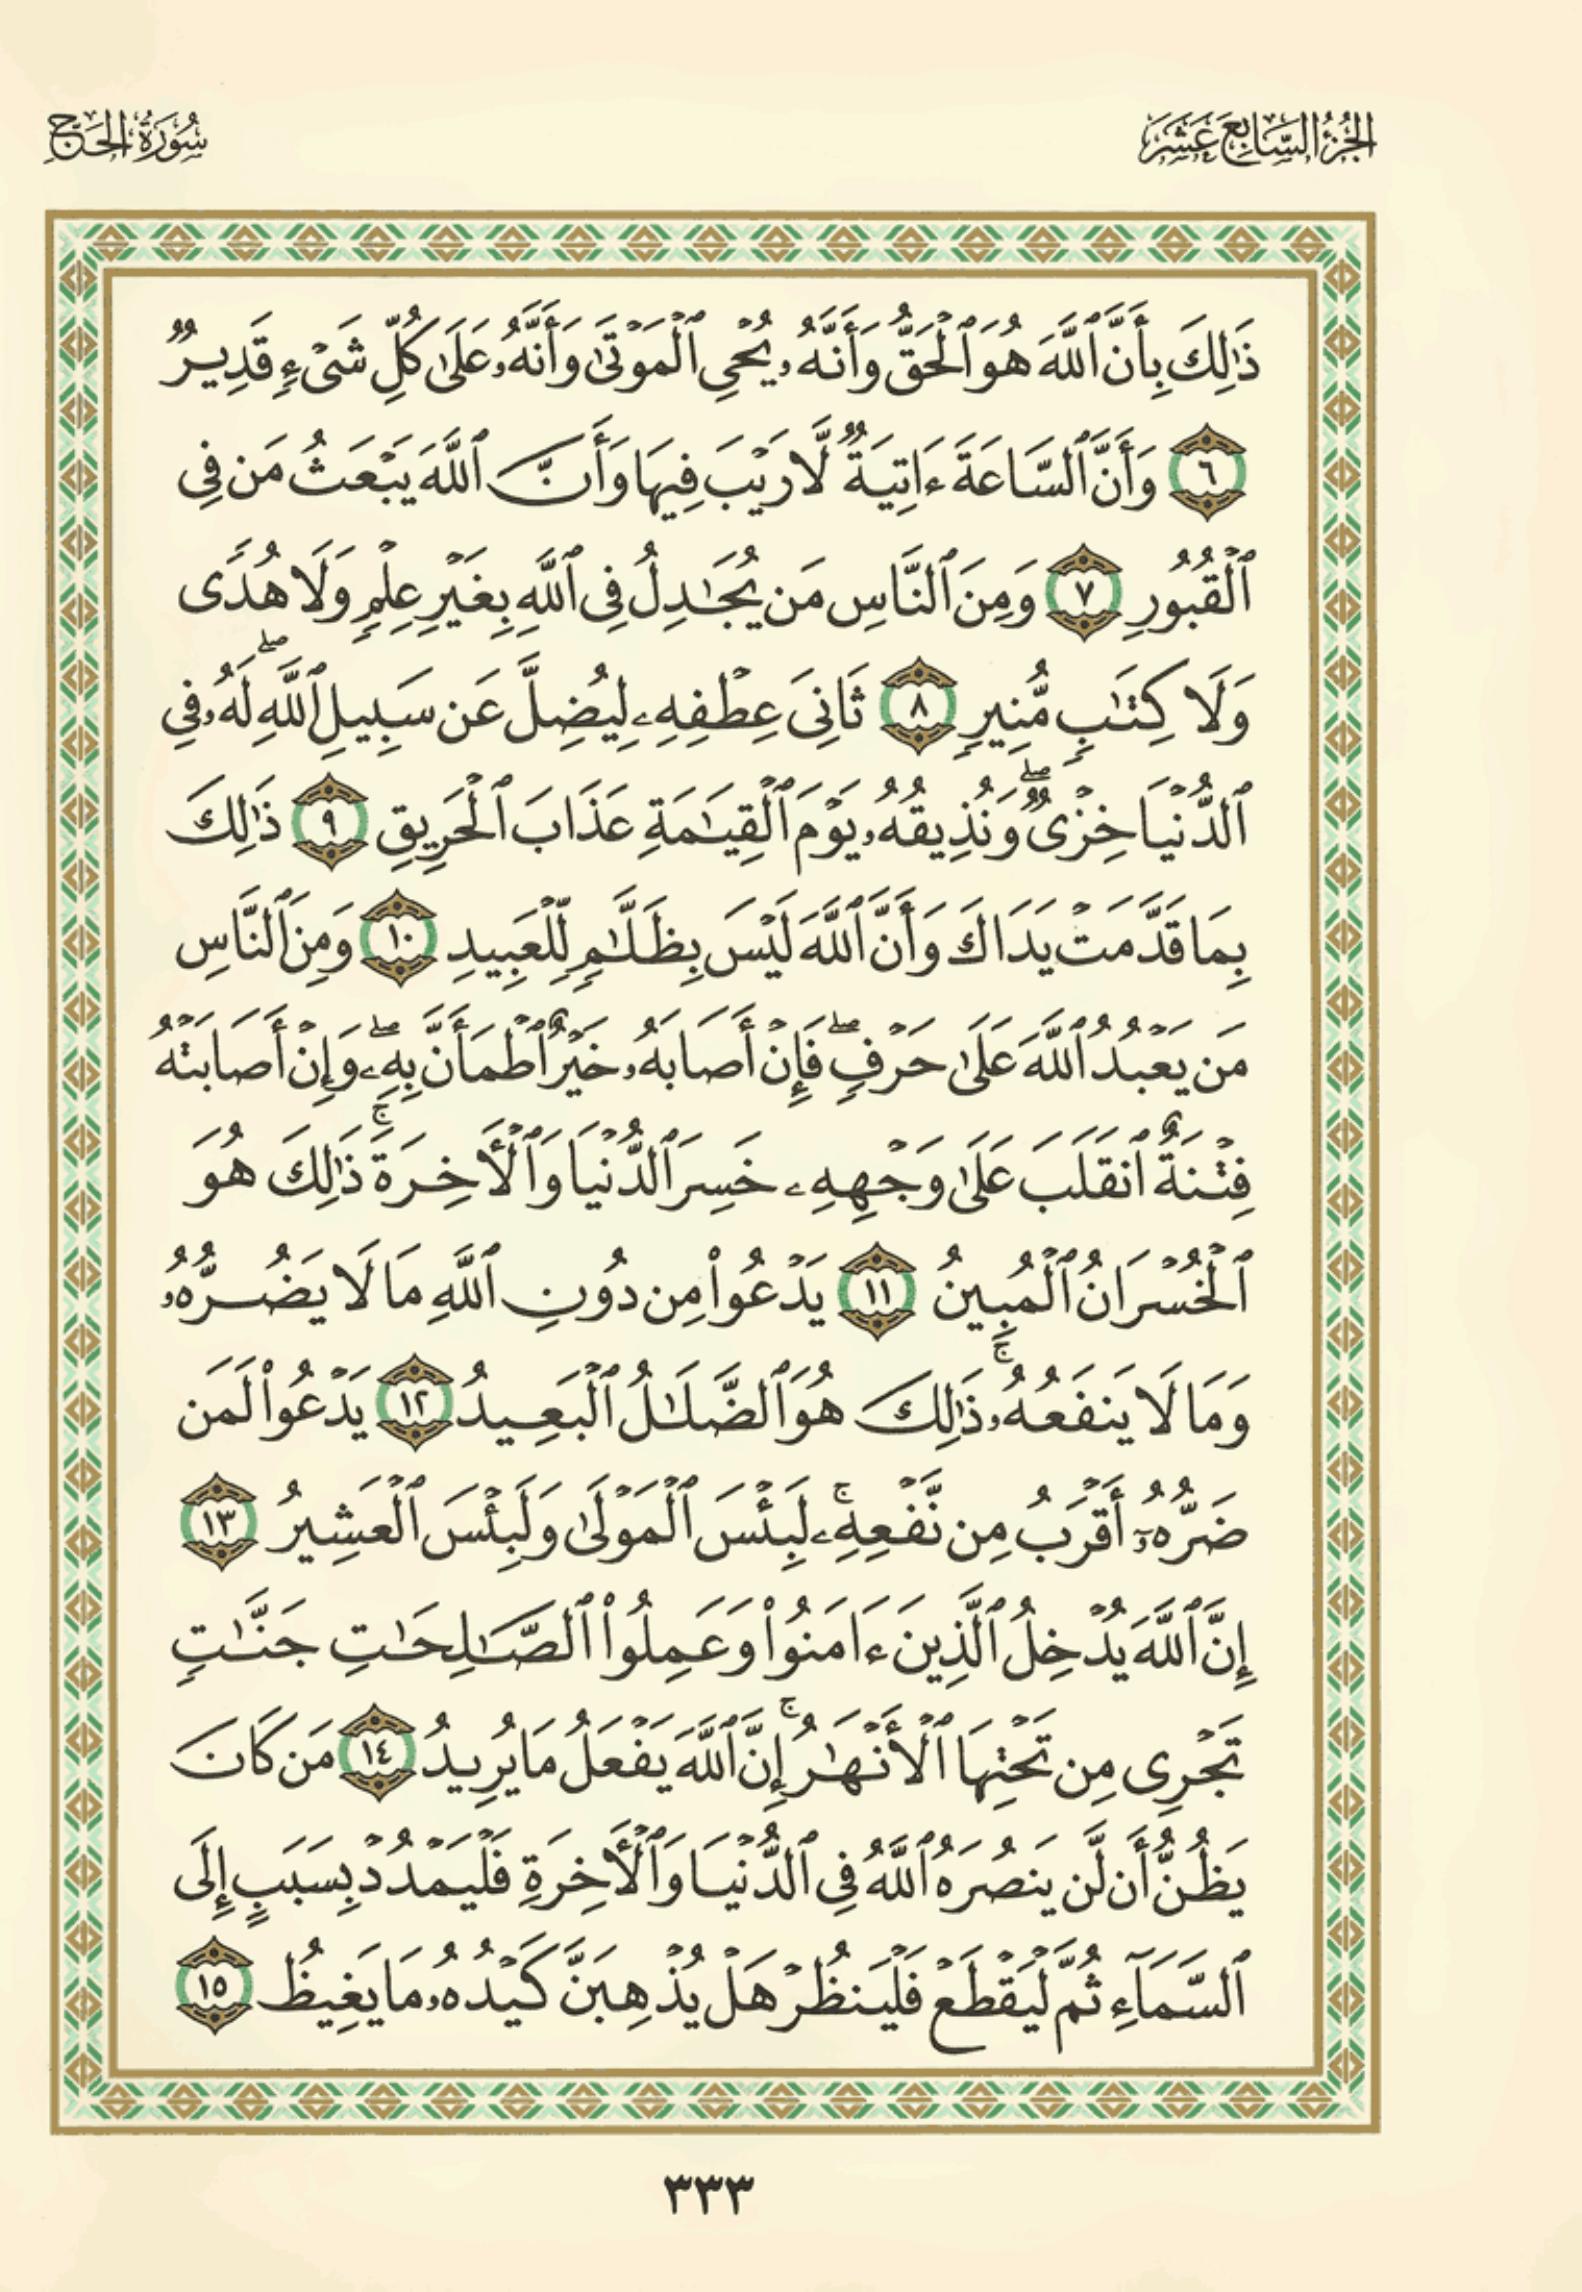 الجزء السابع عشر
سورة الحج
ذَٰلِكَ بِأَنَّ ٱللَّهَ هُوَ ٱلْحَقُّ وَأَنَّهُۥ يُحْىِ ٱلْمَوْتَىٰ وَأَنَّهُۥ عَلَىٰ كُلِّ شَىْءٍ قَدِيرٌ
٦ وَأَنَّ ٱلسَّاعَةَ ءَاتِيَةٌ لَّا رَيْبَ فِيهَا وَأَنَّ ٱللَّهَ يَبْعَثُ مَن فِى
ٱلْقُبُورِ ٧ وَمِنَ ٱلنَّاسِ مَن يُجَـٰدِلُ فِى ٱللَّهِ بِغَيْرِ عِلْمٍ وَلَا هُدًى
وَلَا كِتَـٰبٍ مُّنِيرٍ ٨ ثَانِىَ عِطْفِهِۦ لِيُضِلَّ عَن سَبِيلِ ٱللَّهِ ۖ لَهُۥ فِى
ٱلدُّنْيَا خِزْىٌ ۖ وَنُذِيقُهُۥ يَوْمَ ٱلْقِيَـٰمَةِ عَذَابَ ٱلْحَرِيقِ ٩ ذَٰلِكَ
بِمَا قَدَّمَتْ يَدَاكَ وَأَنَّ ٱللَّهَ لَيْسَ بِظَلَّـٰمٍ لِّلْعَبِيدِ ١٠ وَمِنَ ٱلنَّاسِ
مَن يَعْبُدُ ٱللَّهَ عَلَىٰ حَرْفٍ ۖ فَإِنْ أَصَابَهُۥ خَيْرٌ ٱطْمَأَنَّ بِهِۦ ۖ وَإِنْ أَصَابَتْهُ
فِتْنَةٌ ٱنقَلَبَ عَلَىٰ وَجْهِهِۦ خَسِرَ ٱلدُّنْيَا وَٱلْـَٔاخِرَةَ ۚ ذَٰلِكَ هُوَ
ٱلْخُسْرَانُ ٱلْمُبِينُ ١١ يَدْعُوا۟ مِن دُونِ ٱللَّهِ مَا لَا يَضُرُّهُۥ
وَمَا لَا يَنفَعُهُۥ ۚ ذَٰلِكَ هُوَ ٱلضَّلَـٰلُ ٱلْبَعِيدُ ١٢ يَدْعُوا۟ لَمَن
ضَرُّهُۥٓ أَقْرَبُ مِن نَّفْعِهِۦ ۚ لَبِئْسَ ٱلْمَوْلَىٰ وَلَبِئْسَ ٱلْعَشِيرُ ١٣
إِنَّ ٱللَّهَ يُدْخِلُ ٱلَّذِينَ ءَامَنُوا۟ وَعَمِلُوا۟ ٱلصَّـٰلِحَـٰتِ جَنَّـٰتٍ
تَجْرِى مِن تَحْتِهَا ٱلْأَنْهَـٰرُ ۚ إِنَّ ٱللَّهَ يَفْعَلُ مَا يُرِيدُ ١٤ مَن كَانَ
يَظُنُّ أَن لَّن يَنصُرَهُ ٱللَّهُ فِى ٱلدُّنْيَا وَٱلْـَٔاخِرَةِ فَلْيَمْدُدْ بِسَبَبٍ إِلَى
ٱلسَّمَآءِ ثُمَّ لْيَقْطَعْ فَلْيَنظُرْ هَلْ يُذْهِبَنَّ كَيْدُهُۥ مَا يَغِيظُ ١٥
٣٣٣